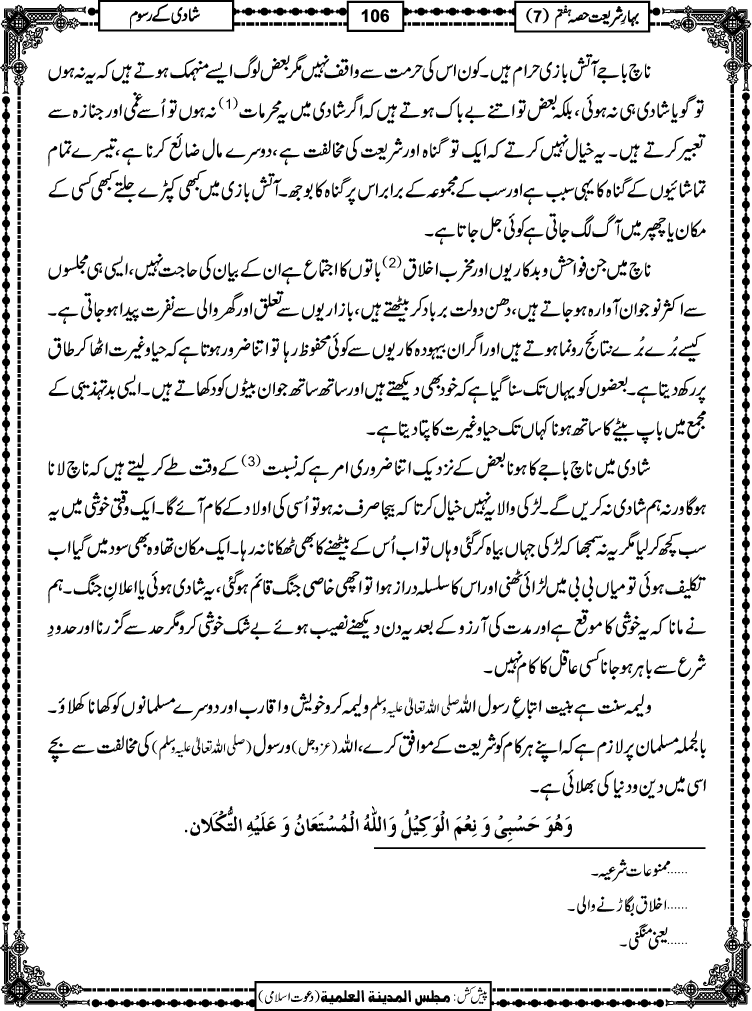 بہارِ شریعت حصہ ہفتم (7)
106
شادی کے رسوم
ناچ باجے آتش بازی حرام ہیں۔ کون اس کی حرمت سے واقف نہیں مگر بعض لوگ ایسے منہمک ہوتے ہیں کہ یہ نہ ہوں
تو گویا شادی ہی نہ ہوئی، بلکہ بعض تو اتنے بے باک ہوتے ہیں کہ اگر شادی میں یہ محرمات (1) نہ ہوں تو اُسے غمی اور جنازہ سے
تعبیر کرتے ہیں۔ یہ خیال نہیں کرتے کہ ایک تو گناہ اور شریعت کی مخالفت ہے، دوسرے مال ضائع کرنا ہے، تیسرے تمام
تماشائیوں کے گناہ کا یہی سبب ہے اور سب کے مجموعہ کے برابر اس پر گناہ کا بوجھ۔ آتش بازی میں کبھی کپڑے جلتے کبھی کسی کے
مکان یا چھپر میں آگ لگ جاتی ہے کوئی جل جاتا ہے۔
ناچ میں جن فواحش و بدکاریوں اور مخرب اخلاق (2) باتوں کا اجتماع ہے ان کے بیان کی حاجت نہیں، ایسی ہی مجلسوں
سے اکثر نوجوان آوارہ ہو جاتے ہیں، دھن دولت برباد کر بیٹھتے ہیں، بازاریوں سے تعلق اور گھر والی سے نفرت پیدا ہو جاتی ہے۔
کیسے بُرے بُرے نتائج رونما ہوتے ہیں اور اگر ان بیہودہ کاریوں سے کوئی محفوظ رہا تو اتنا ضرور ہوتا ہے کہ حیا و غیرت اٹھا کر طاق
پر رکھ دیتا ہے۔ بعضوں کو یہاں تک سنا گیا ہے کہ خود بھی دیکھتے ہیں اور ساتھ ساتھ جوان بیٹوں کو دکھاتے ہیں۔ ایسی بدتہذیبی کے
مجمع میں باپ بیٹے کا ساتھ ہونا کہاں تک حیا و غیرت کا پتا دیتا ہے۔
شادی میں ناچ باجے کا ہونا بعض کے نزدیک اتنا ضروری امر ہے کہ نسبت (3) کے وقت طے کر لیتے ہیں کہ ناچ لانا
ہوگا ورنہ ہم شادی نہ کریں گے۔ لڑکی والا یہ نہیں خیال کرتا کہ بیجا صرف نہ ہو تو اُسی کی اولاد کے کام آئے گا۔ ایک وقتی خوشی میں یہ
سب کچھ کر لیا مگر یہ نہ سمجھا کہ لڑکی جہاں بیاہ کر گئی وہاں تو اب اُس کے بیٹھنے کا بھی ٹھکانا نہ رہا۔ ایک مکان تھا وہ بھی سود میں گیا اب
تکلیف ہوئی تو میاں بی بی میں لڑائی ٹھنی اور اس کا سلسلہ دراز ہوا تو اچھی خاصی جنگ قائم ہوگئی، یہ شادی ہوئی یا اعلانِ جنگ۔ ہم
نے مانا کہ یہ خوشی کا موقع ہے اور مدت کی آرزو کے بعد یہ دن دیکھنے نصیب ہوئے بے شک خوشی کرو مگر حد سے گزرنا اور حدودِ
شرع سے باہر ہو جانا کسی عاقل کا کام نہیں۔
ولیمہ سنت ہے بنیت اتباعِ رسول اللہ صلی اللہ تعالیٰ علیہ وسلم ولیمہ کرو خویش و اقارب اور دوسرے مسلمانوں کو کھانا کھلاؤ۔
بالجملہ مسلمان پر لازم ہے کہ اپنے ہر کام کو شریعت کے موافق کرے، اللہ (عزوجل) و رسول (صلی اللہ تعالیٰ علیہ وسلم) کی مخالفت سے بچے
اسی میں دین و دنیا کی بھلائی ہے۔
وَهُوَ حَسْبِيْ وَ نِعْمَ الْوَكِيْلُ وَاللهُ الْمُسْتَعَانُ وَ عَلَيْهِ التُّكْلَان.
......ممنوعات شرعیہ۔
......اخلاق بگاڑنے والی۔
......یعنی منگنی۔
پیش کش: مجلس المدینة العلمیة (دعوت اسلامی)